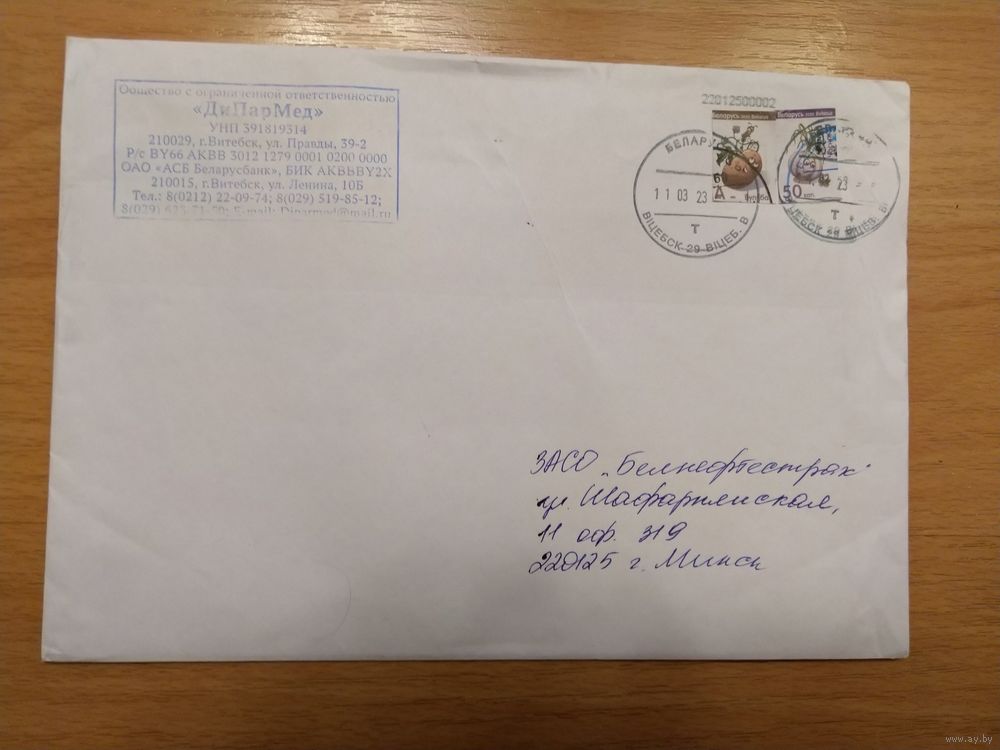 Общество с ограниченной ответственностью
«ДиПарМед»
УНП 391819314
210029, г.Витебск, ул. Правды, 39-2
Р/с BY66 AKBB 3012 1279 0001 0200 0000
ОАО «АСБ Беларусбанк», БИК AKBBBY2X
210015, г.Витебск, ул. Ленина, 10Б
Тел.: 8(0212) 22-09-74; 8(029) 519-85-12;
E-mail: Diparmed@mail.ru
22012500002
Беларусь 2020 Belarus
А
Беларусь 2020 Belarus
50
БЕЛАРУСЬ
11 03 23
Т
ВІЦЕБСК 29 ВІЦЕБ. В
23
Т
ВІЦЕБСК 29 ВІЦЕБ. В
ЗАСО „Белнефтестрах"
ул. Шафарнянская,
11 оф. 319
220125 г. Минск
www.ay.by